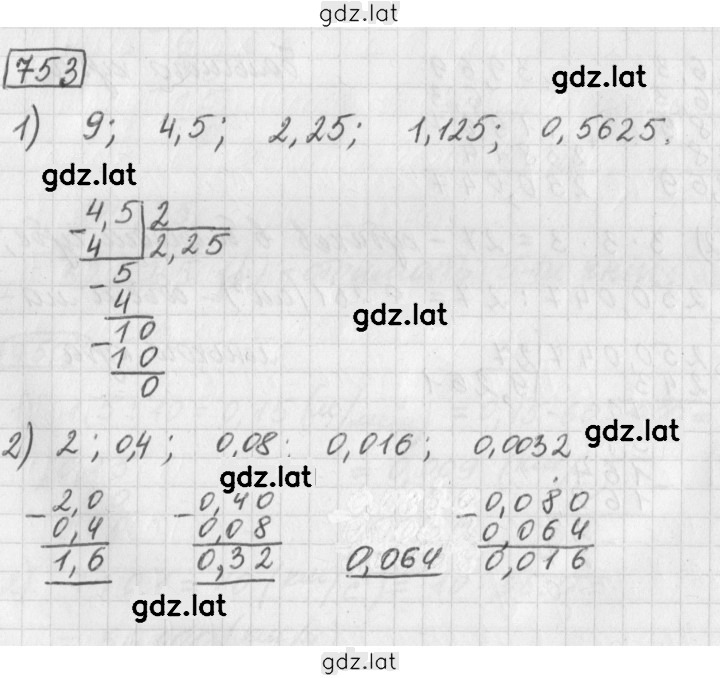 gdz.lat
753
gdz.lat
1) 9; 4,5; 2,25; 1,125; 0,5625.
gdz.lat
- 4,5 | 2
4 | 2,25
- 5
4
gdz.lat
- 10
10
0
2) 2; 0,4; 0,08; 0,016; 0,0032
gdz.lat
gdz.lat
- 2,0 - 0,40 - 0,080
0,4 0,08 0,064
1,6 0,32 0,064 0,016
gdz.lat
gdz.lat